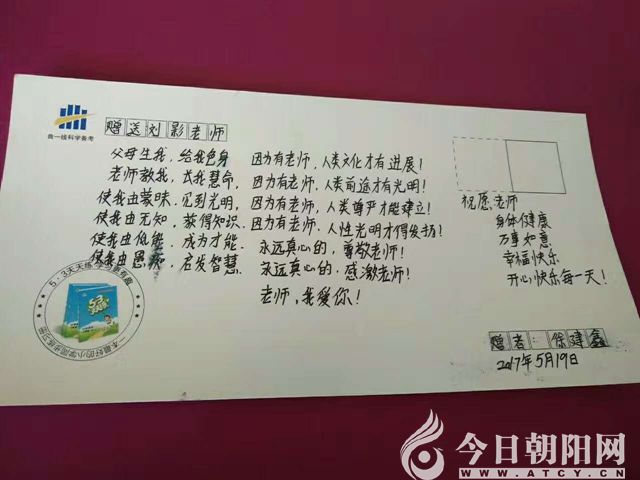 曲一线科学备考
赠送刘影老师
父母生我,给我色身 因为有老师,人类文化才有进展!
老师教我,长我慧命, 因为有老师,人类前途才有光明!
使我由蒙昧,见到光明, 因为有老师,人类尊严才能建立!
使我由无知,获得知识. 因为有老师,人性光明才得发扬!
使我由低能,成为才能. 永远真心的,尊敬老师!
使我由愚痴,启发智慧. 永远真心的,感激老师!
老师,我爱你!
祝愿:老师
身体健康
万事如意
幸福快乐
开心快乐每一天!
5·3天天练
一本最好的小学同步练习册
赠者:徐建鑫
2017年5月19日
今日朝阳网
WWW.ATCY.CN